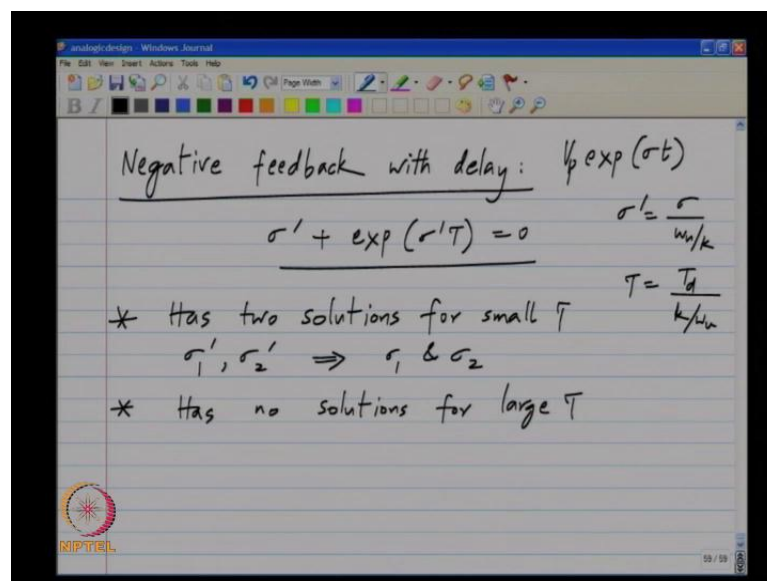 analogicdesign - Windows Journal
File Edit View Insert Actions Tools Help
Page Width
B I
Negative feedback with delay : Vp exp (σt)
σ' + exp (σ'T) = 0
σ' = σ / ωu/k
T = Td / k/ωu
* Has two solutions for small T
σ1', σ2' ⇒ σ1 & σ2
* Has no solutions for large T
NPTEL
59 / 59